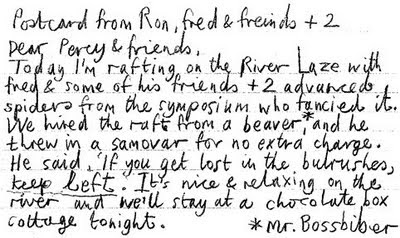 Postcard from Ron, fred & freinds + 2
Dear Percy & friends,
Today I'm rafting on the River Laze with
fred & some of his friends + 2 advanced
spiders from the symposium who fancied it.
We hired the raft from a beaver,* and he
threw in a samovar for no extra charge.
He said, 'If you get lost in the bulrushes,
keep left'. It's nice & relaxing on the
river and we'll stay at a chocolate box
cottage tonight. *Mr. Bossbiber